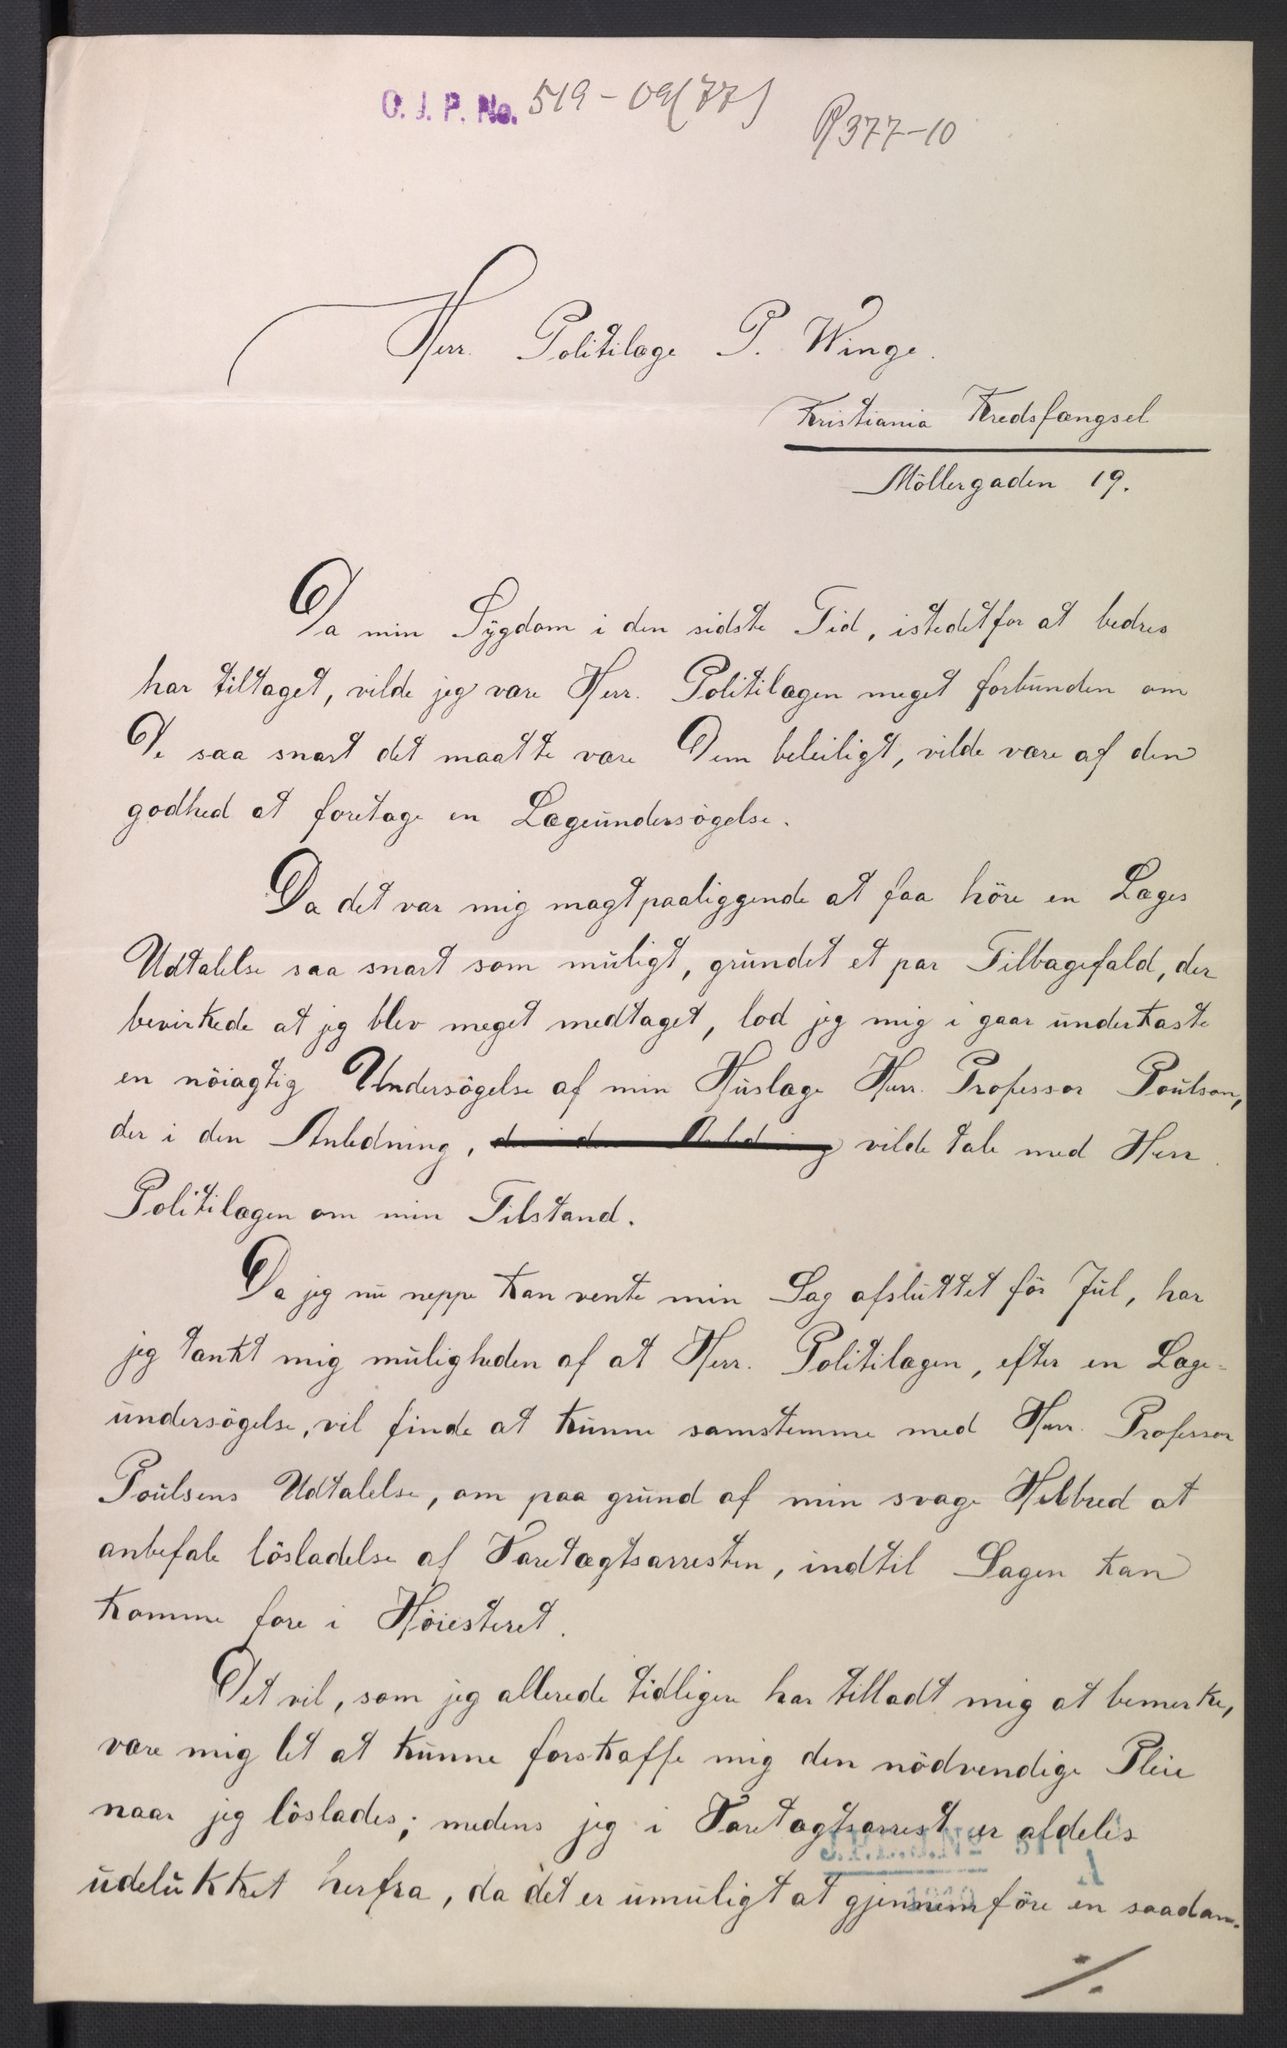 O. J. P. No. 519-09(77)
P377-10
Herr. Politilæge P. Winge.
Kristiania Kredsfængsel
Möllergaden 19.
Da min Sygdom i den sidste Tid, istedetfor at bedres
har tiltaget, vilde jeg være Herr. Politilægen meget forbunden om
De saa snart det maatte være Dem beleiligt, vilde være af den
godhed at foretage en Lægeundersögelse.
Da det var mig magtpaaliggende at faa höre en Læges
Udtalelse saa snart som muligt, grundet et par Tilbagefald, der
bevirkede at jeg blev meget medtaget, lod jeg mig i gaar underkaste
en nöiagtig Undersögelse af min Huslæge Herr. Professor Poulson,
der i den Anledning, der i den Anledning vilde tale med Herr.
Politilægen om min Tilstand.
Da jeg nu neppe kan vente min Sag afsluttet för Jul, har
jeg tænkt mig muligheden af at Herr. Politilægen, efter en Læge-
undersögelse, vil finde at kunne samstemme med Herr. Professor
Poulsens Udtalelse, om paa grund af min svage Helbred at
anbefale lösladelse af Varetægtsarresten, indtil Sagen kan
komme fore i Höiesteret.
Det vil, som jeg allerede tidligere har tilladt mig at bemerke,
være mig let at kunne forskaffe mig den nödvendige Pleie
naar jeg löslades; medens jeg i Varetægtsarrest er aldeles
udelukket herfra, da det er umuligt at gjennemföre en saadan
A
1910
./.